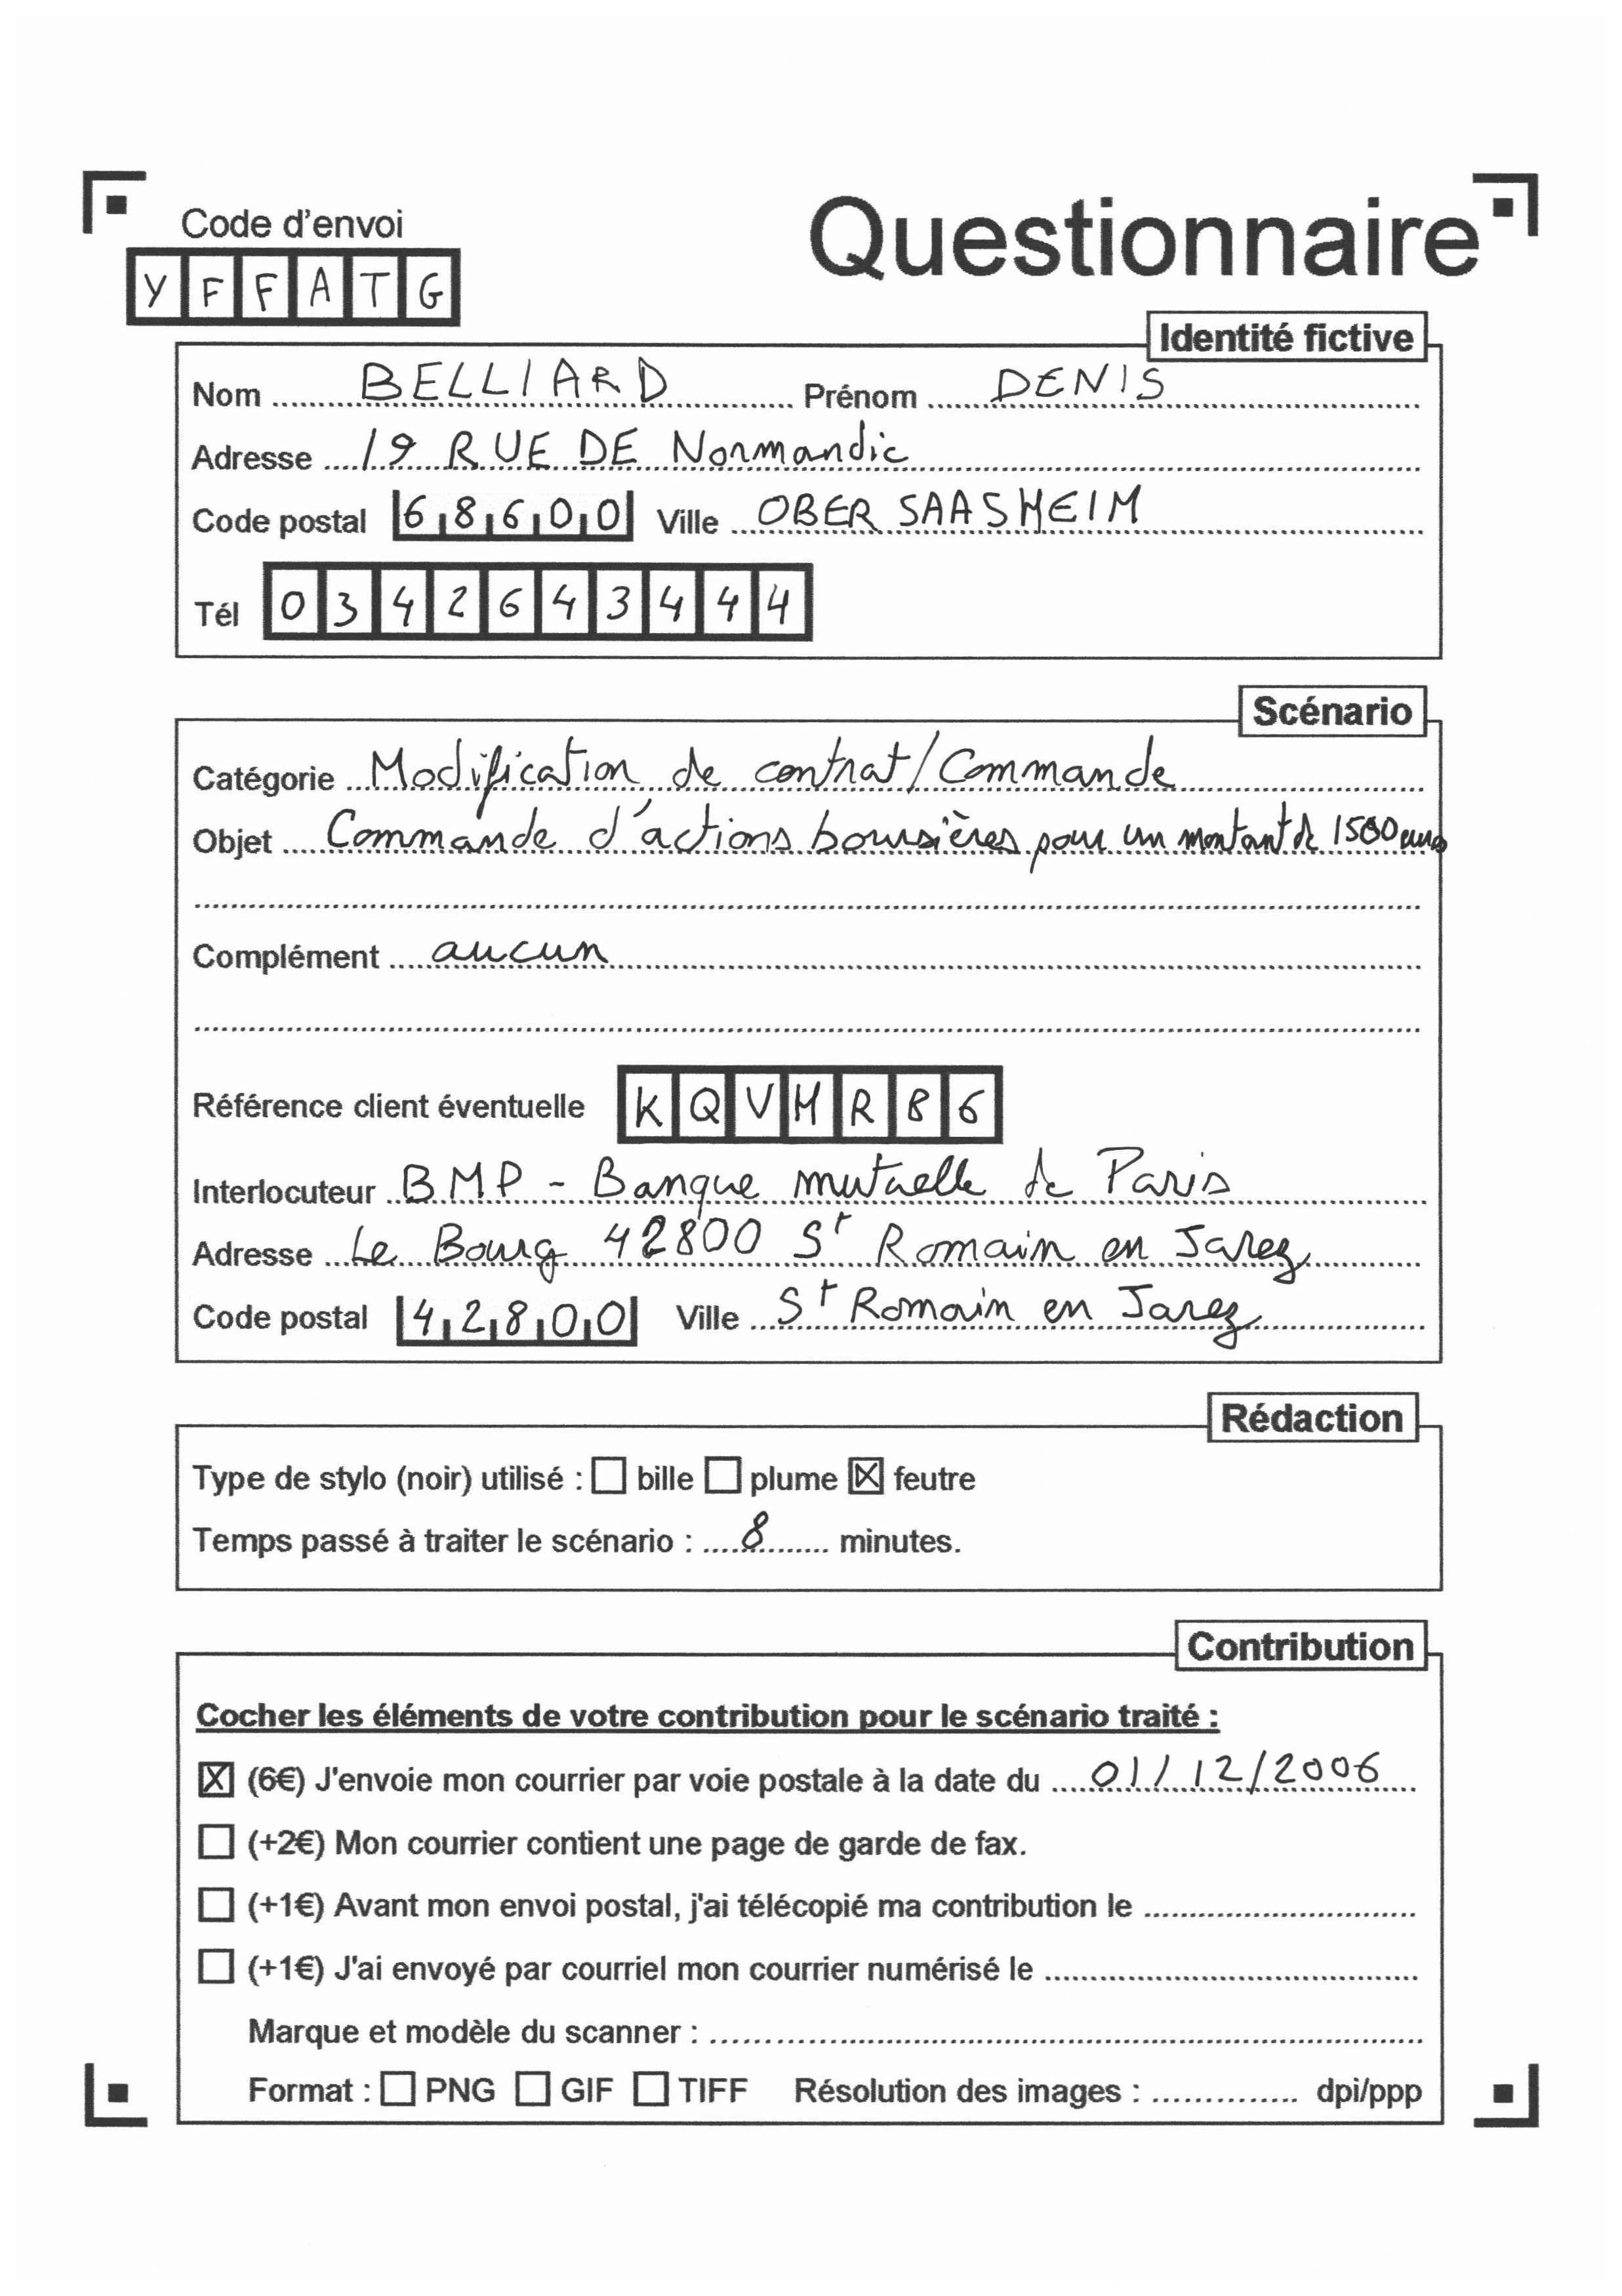 Code d'envoi
YFFATG
Questionnaire
Identité fictive
Nom BELLIARD Prénom DENIS
Adresse 19 RUE DE Normandie
Code postal 68600 Ville OBER SAASHEIM
Tél 0342643444
Scénario
Catégorie Modification de contrat/Commande
Objet Commande d'actions boursières pour un montant de 1500 euros
Complément aucun
Référence client éventuelle KQVHR86
Interlocuteur BMP - Banque mutuelle de Paris
Adresse Le Bourg 42800 St Romain en Jarez
Code postal 42800 Ville St Romain en Jarez
Rédaction
Type de stylo (noir) utilisé : ☐ bille ☐ plume ☒ feutre
Temps passé à traiter le scénario : 8 minutes.
Contribution
Cocher les éléments de votre contribution pour le scénario traité :
☒ (6€) J'envoie mon courrier par voie postale à la date du 01/12/2006
☐ (+2€) Mon courrier contient une page de garde de fax.
☐ (+1€) Avant mon envoi postal, j'ai télécopié ma contribution le
☐ (+1€) J'ai envoyé par courriel mon courrier numérisé le
Marque et modèle du scanner :
Format : ☐ PNG ☐ GIF ☐ TIFF Résolution des images : dpi/ppp